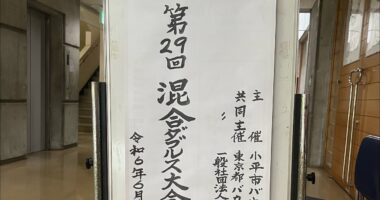 主催 小平市バ
共同主催 東京都バ
〃 一般社団法人
第29回 混合ダブルス大会
令和6年6月